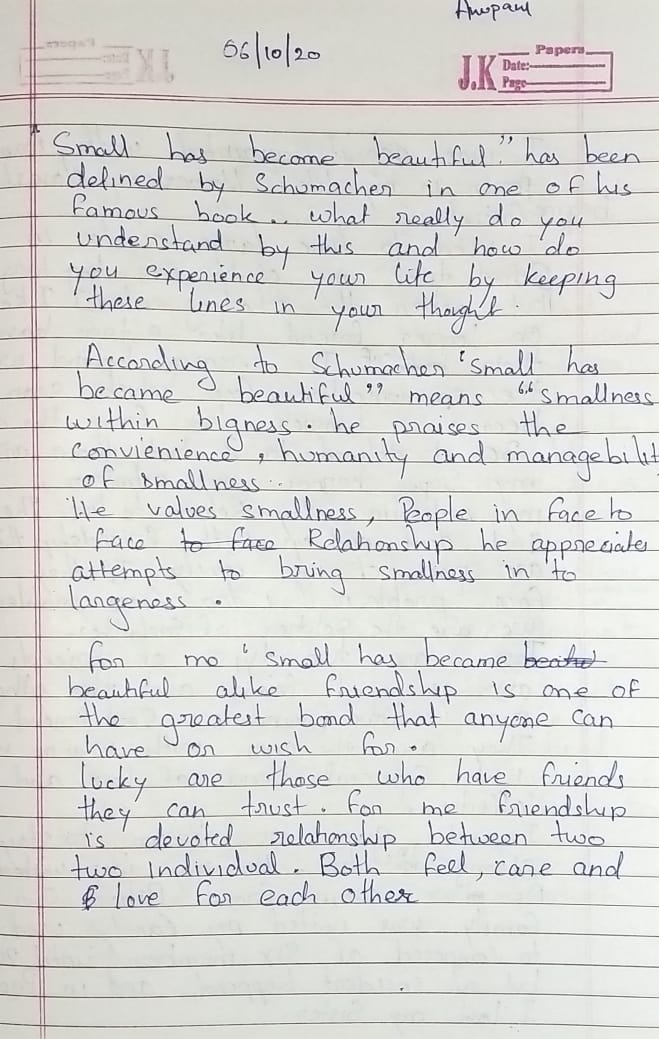 Anupam
06/10/20
J.K Papers
Date:
Page
"Small has become beautiful." has been
defined by Schumacher in one of his
famous book.. what really do you
understand by this and how do
you experience your life by keeping
these lines in your thought.
According to Schumacher "small has
became beautiful" means "smallness
within bigness. he praises the
convienience, humanity and managebilit
of smallness..
He values smallness, People in face to
face to face Relationship he appreciates
attempts to bring smallness in to
largeness.
for mo "small has became
beautiful alike friendship is one of
the greatest bond that anyone can
have or wish for.
lucky are those who have friends
they can trust. for me friendship
is devoted relationship between two
two individual. Both feel, care and
love for each other